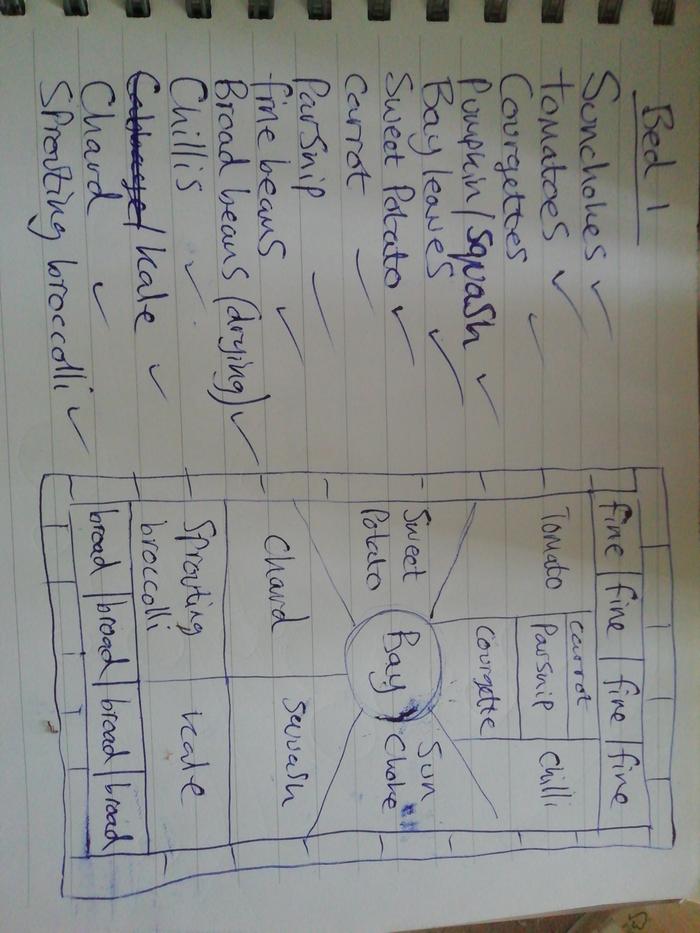 Bed 1
Sunchokes ✓
tomatoes ✓
Courgettes ✓
Pumpkin/squash ✓
Bay leaves ✓
Sweet Potato ✓
carrot ✓
Parsnip ✓
fine beans ✓
Broad beans (drying) ✓
Chillis ✓
Cabbage/kale ✓
Chard ✓
Sprouting broccolli ✓
fine | fine | fine | fine
Tomato
carrot
Parsnip
Chilli
Courgette
Sweet
Potato
Bay
Sun
Choke
Chard
Squash
Sprouting
broccolli
kale
broad | broad | broad | broad